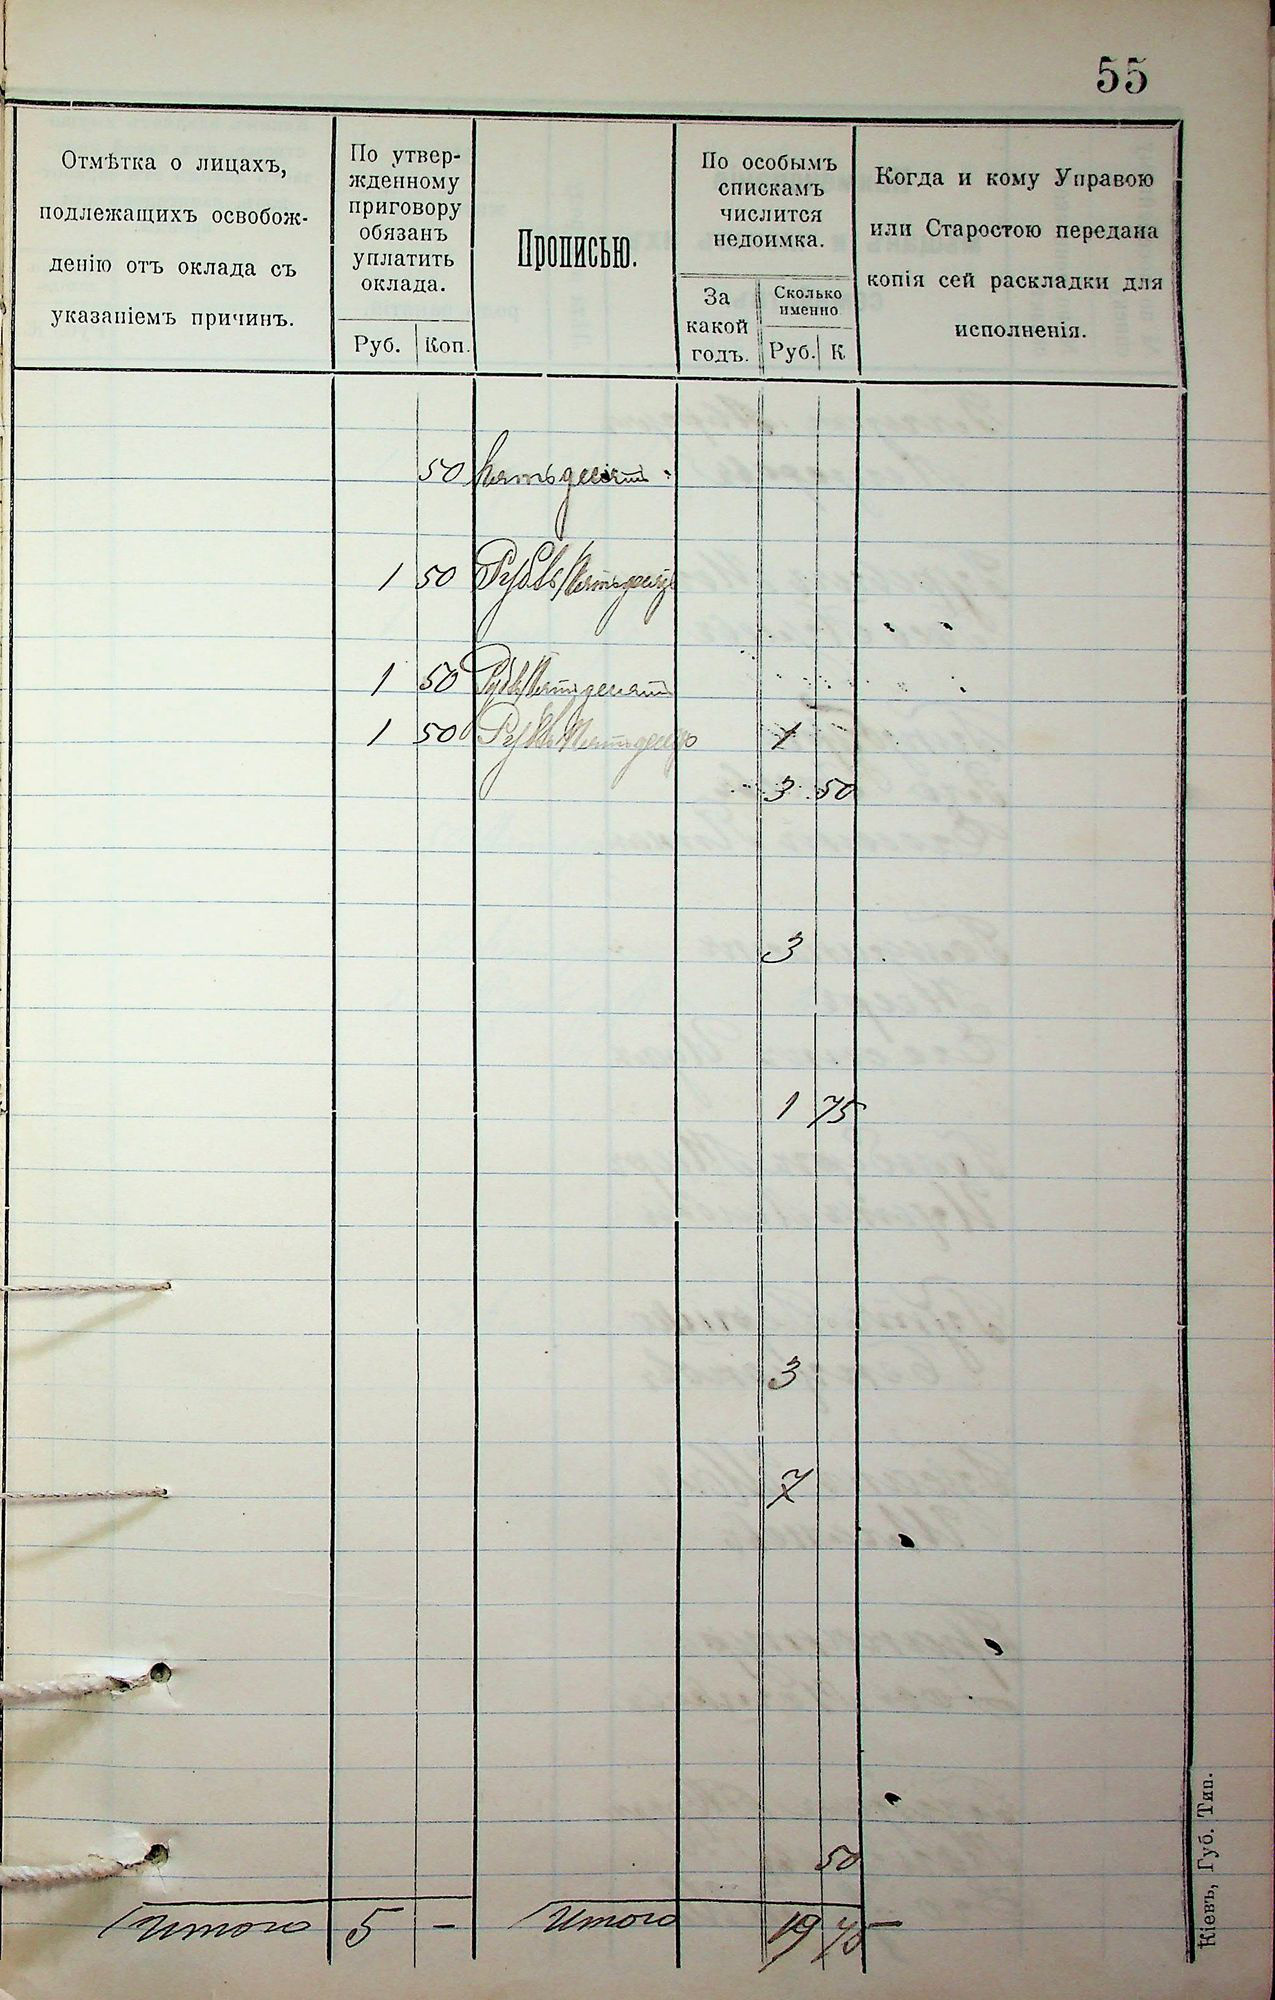 55
Отмѣтка о лицахъ,
подлежащихъ освобож-
денію отъ оклада съ
указаніемъ причинъ.
По утвер-
жденному
приговору
обязанъ
уплатить
оклада.
Руб. Коп.
Прописью.
По особымъ
спискамъ
числится
недоимка.
За
какой
годъ.
Сколько
именно
Руб. К
Когда и кому Управою
или Старостою передана
копія сей раскладки для
исполненія.
50 Пятьдесятъ
1 50 Рубль Пятьдесят
1 50 Рубль Пятьдесят
1 50 Рубль Пятьдесят 1
3 50
3
1 75
3
7
50
Итого 5 — Итого 19 75
Кіевъ, Губ. Тип.